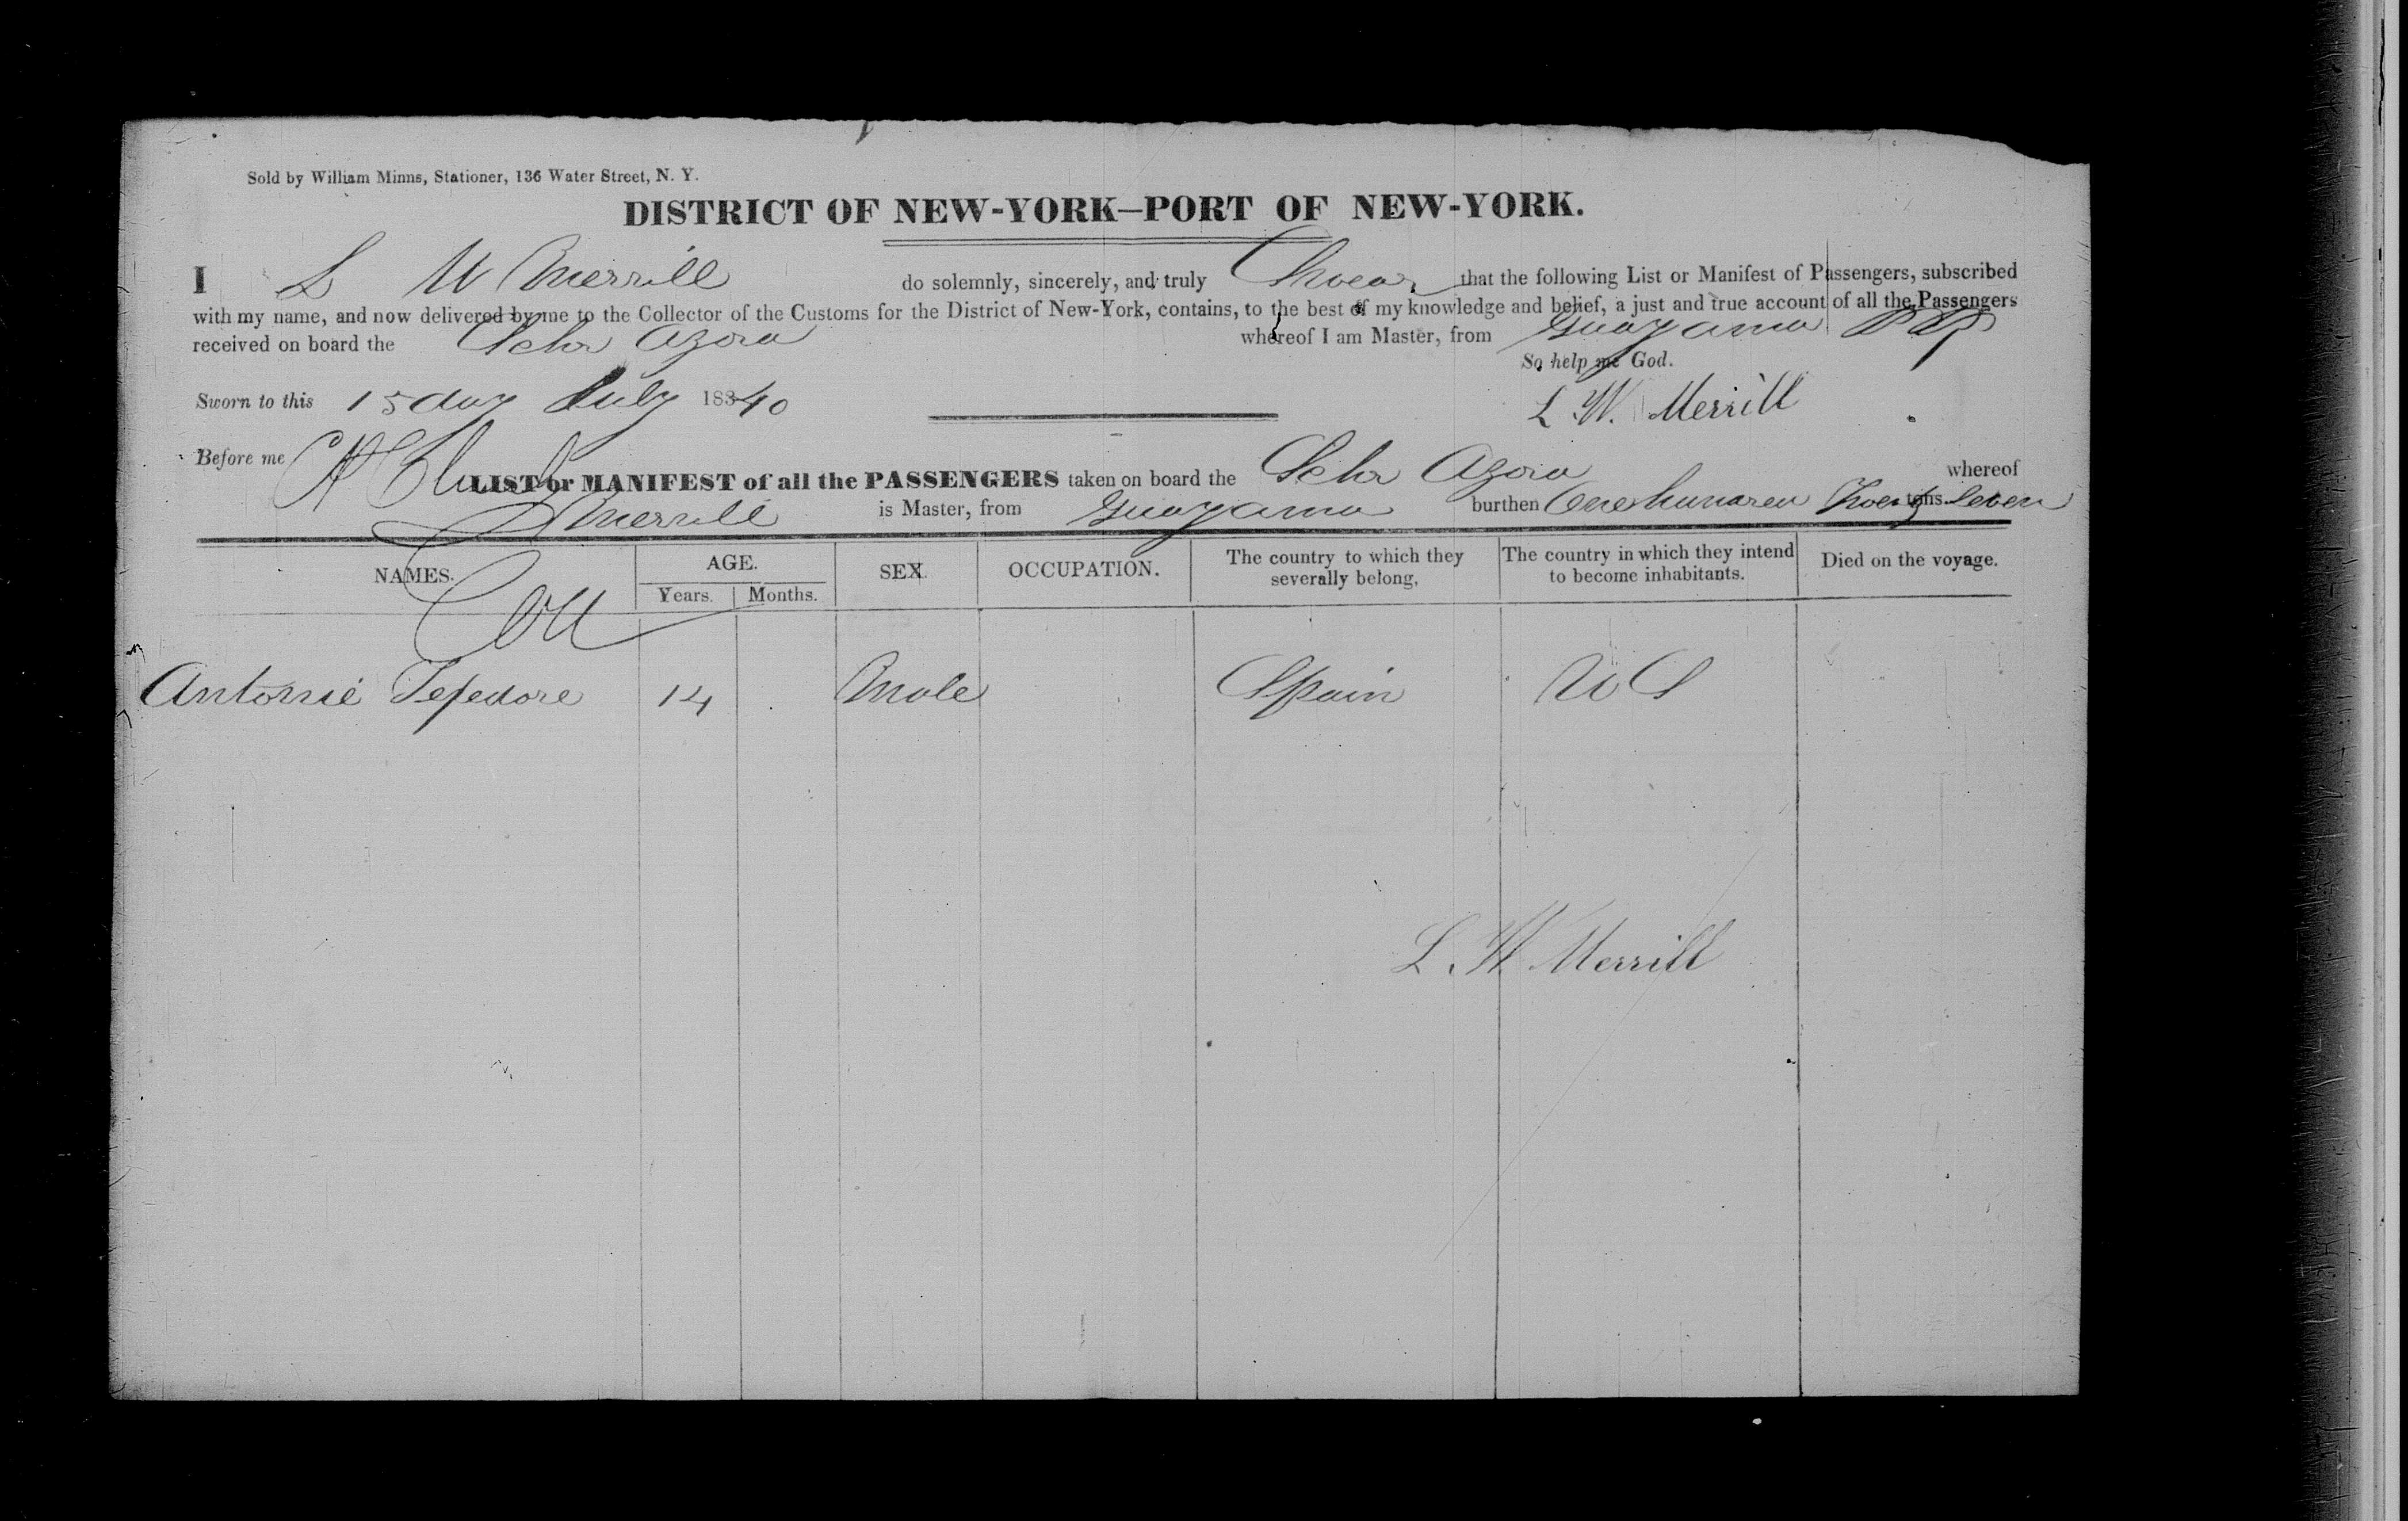 Sold by William Minns, Stationer, 136 Water Street, N. Y.
DISTRICT OF NEW-YORK–PORT OF NEW-YORK.
I L W Merrill do solemnly, sincerely, and truly Swear that the following List or Manifest of Passengers, subscribed
with my name, and now delivered by me to the Collector of the Customs for the District of New-York, contains, to the best of my knowledge and belief, a just and true account of all the Passengers
received on board the Schr Azora whereof I am Master, from Guayama PR
So help me God.
Sworn to this 15 day July 1840
L W. Merrill
Before me
LIST or MANIFEST of all the PASSENGERS taken on board the Schr Azora whereof
Merrill is Master, from Guayama burthen One hundred Twenty Seven tons
NAMES. AGE. SEX. OCCUPATION. The country to which they severally belong, The country in which they intend to become inhabitants. Died on the voyage.
Years. Months.
Coll
Antonie 14 Male Spain U S
L W Merrill